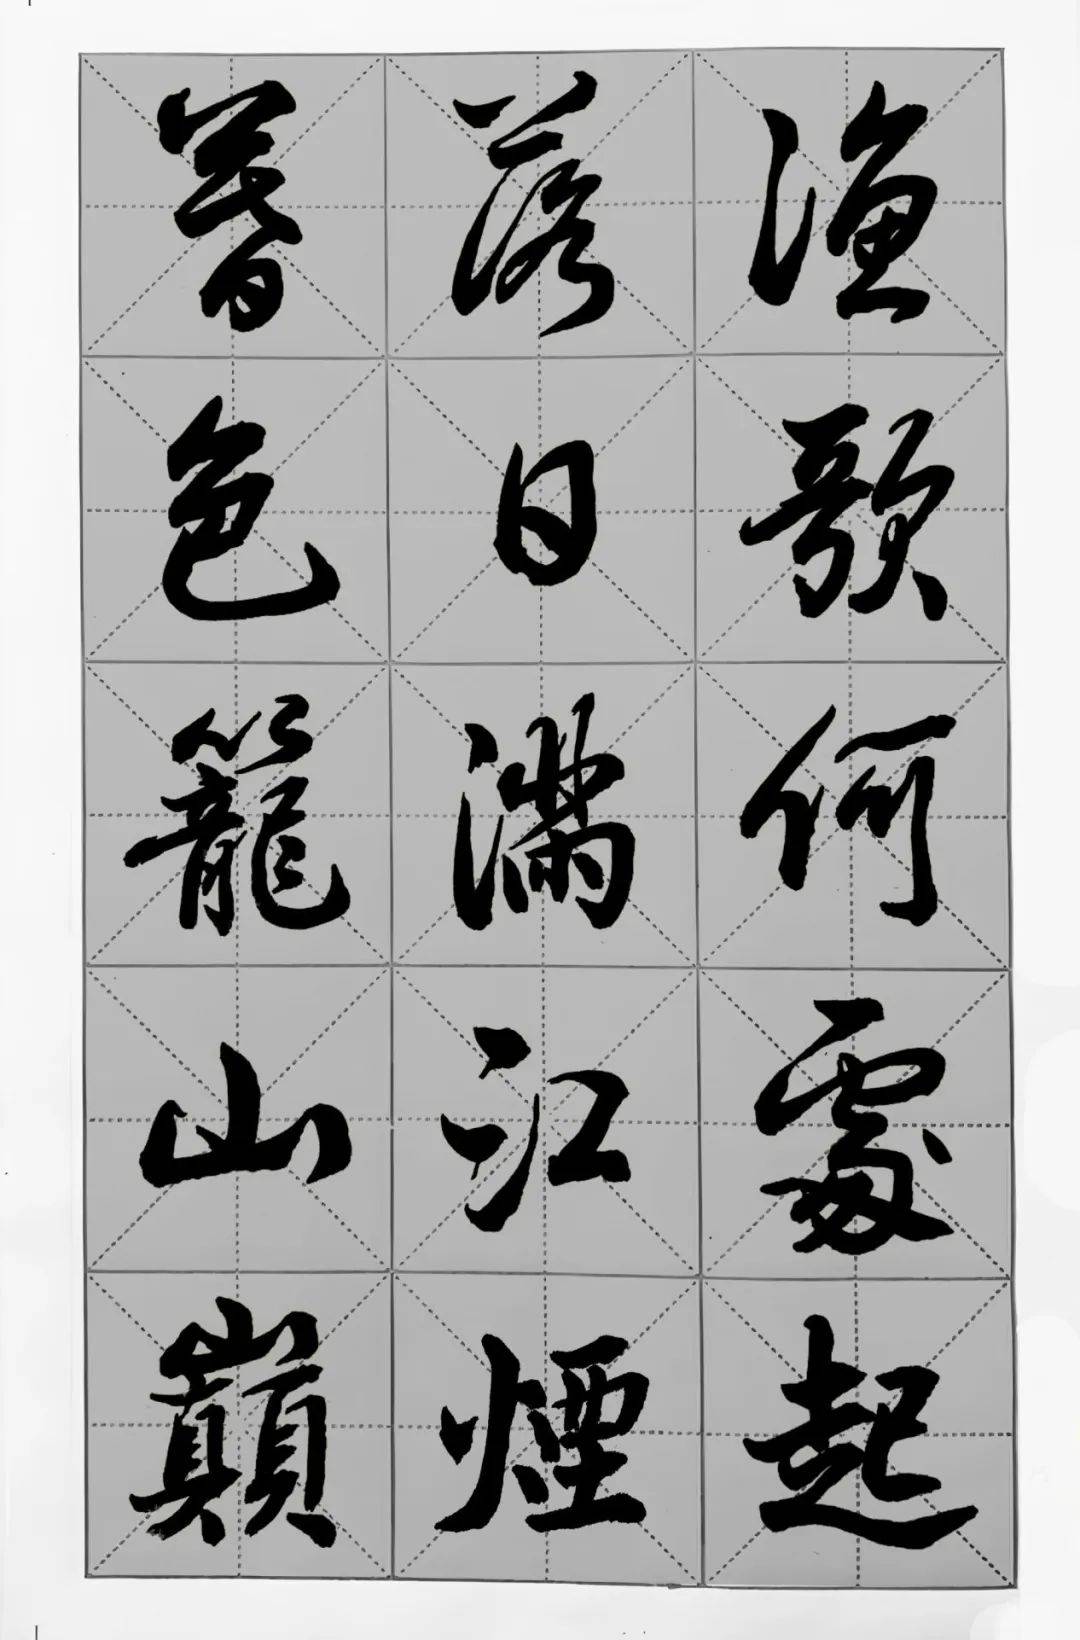 漁歌何處起
落日滿江煙
暮色籠山巔